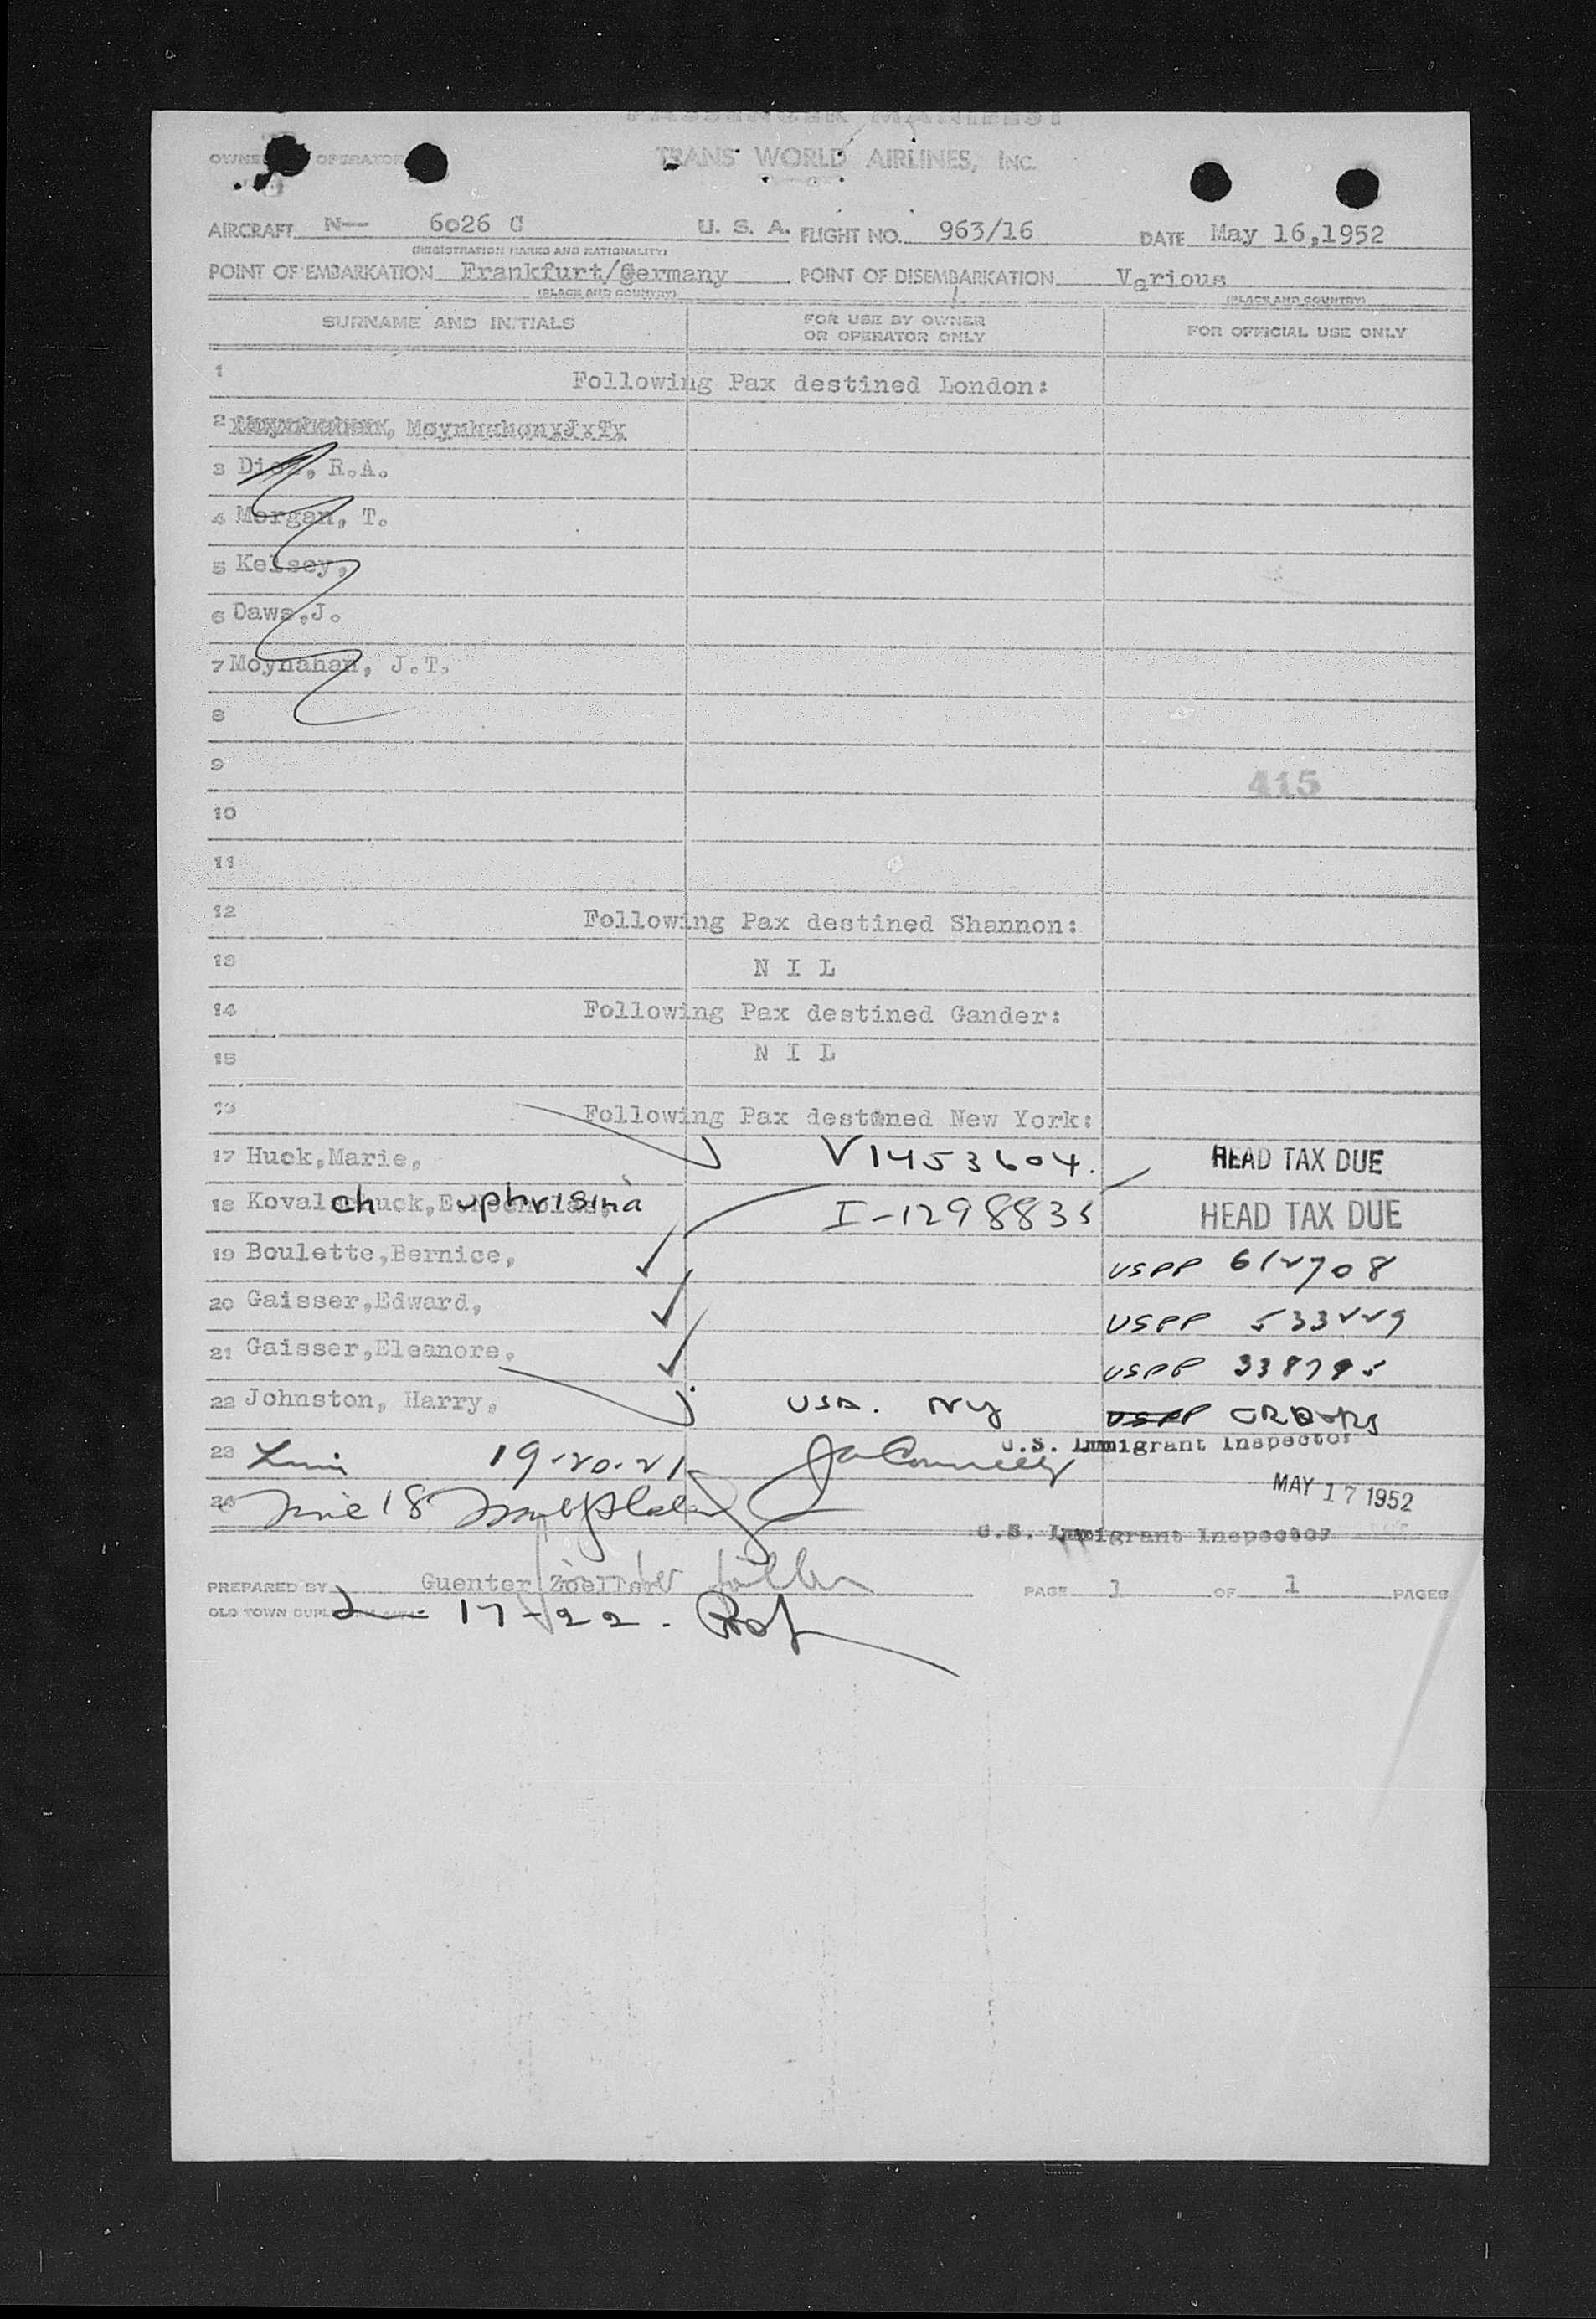 PASSENGER MANIFEST
OWNER OPERATOR
TRANS WORLD AIRLINES, INC.
AIRCRAFT N— 6026 C U. S. A. FLIGHT NO. 963/16 DATE May 16,1952
(REGISTRATION MARKS AND NATIONALITY)
POINT OF EMBARKATION Frankfurt/Germany POINT OF DISEMBARKATION Various
(PLACE AND COUNTRY) (PLACE AND COUNTRY)
SURNAME AND INITIALS FOR USE BY OWNER OR OPERATOR ONLY FOR OFFICIAL USE ONLY
1 Following Pax destined London:
2
3 R.A.
4 Morgan, T.
5 Kelsey,
6 Daws,J.
7 Moynahan, J.T.
8
9
415
10
11
12 Following Pax destined Shannon:
13 N I L
14 Following Pax destined Gander:
15 N I L
16 Following Pax destined New York:
17 Huck,Marie, V1453604. HEAD TAX DUE
18 Kovalchuck,Euphrisina I-1298835 HEAD TAX DUE
19 Boulette,Bernice, USPP 612708
20 Gaisser,Edward, USPP 533229
21 Gaisser,Eleanore, USPP 338795
22 Johnston, Harry, USA. NY USPP
23 19-20-21 U.S. Immigrant Inspector
MAY 17 1952
24 18
U.S. Immigrant Inspector
PREPARED BY Guenter Zoeller PAGE 1 OF 1 PAGES
OLD TOWN 17-22.